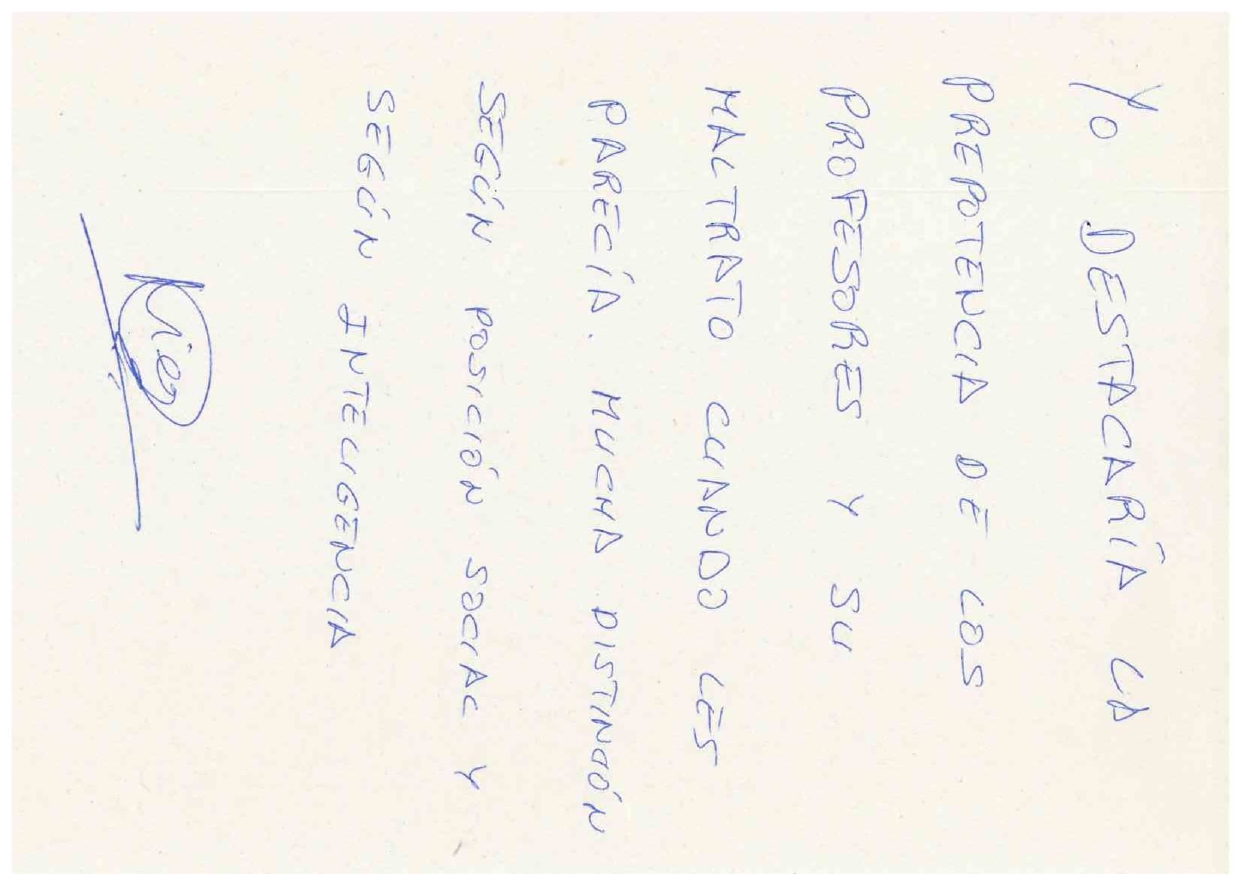 YO DESTACARÍA LA
PREPOTENCIA DE LOS
PROFESORES Y SU
MALTRATO CUANDO LES
PARECÍA. MUCHA DISTINCIÓN
SEGÚN POSICIÓN SOCIAL Y
SEGÚN INTELIGENCIA